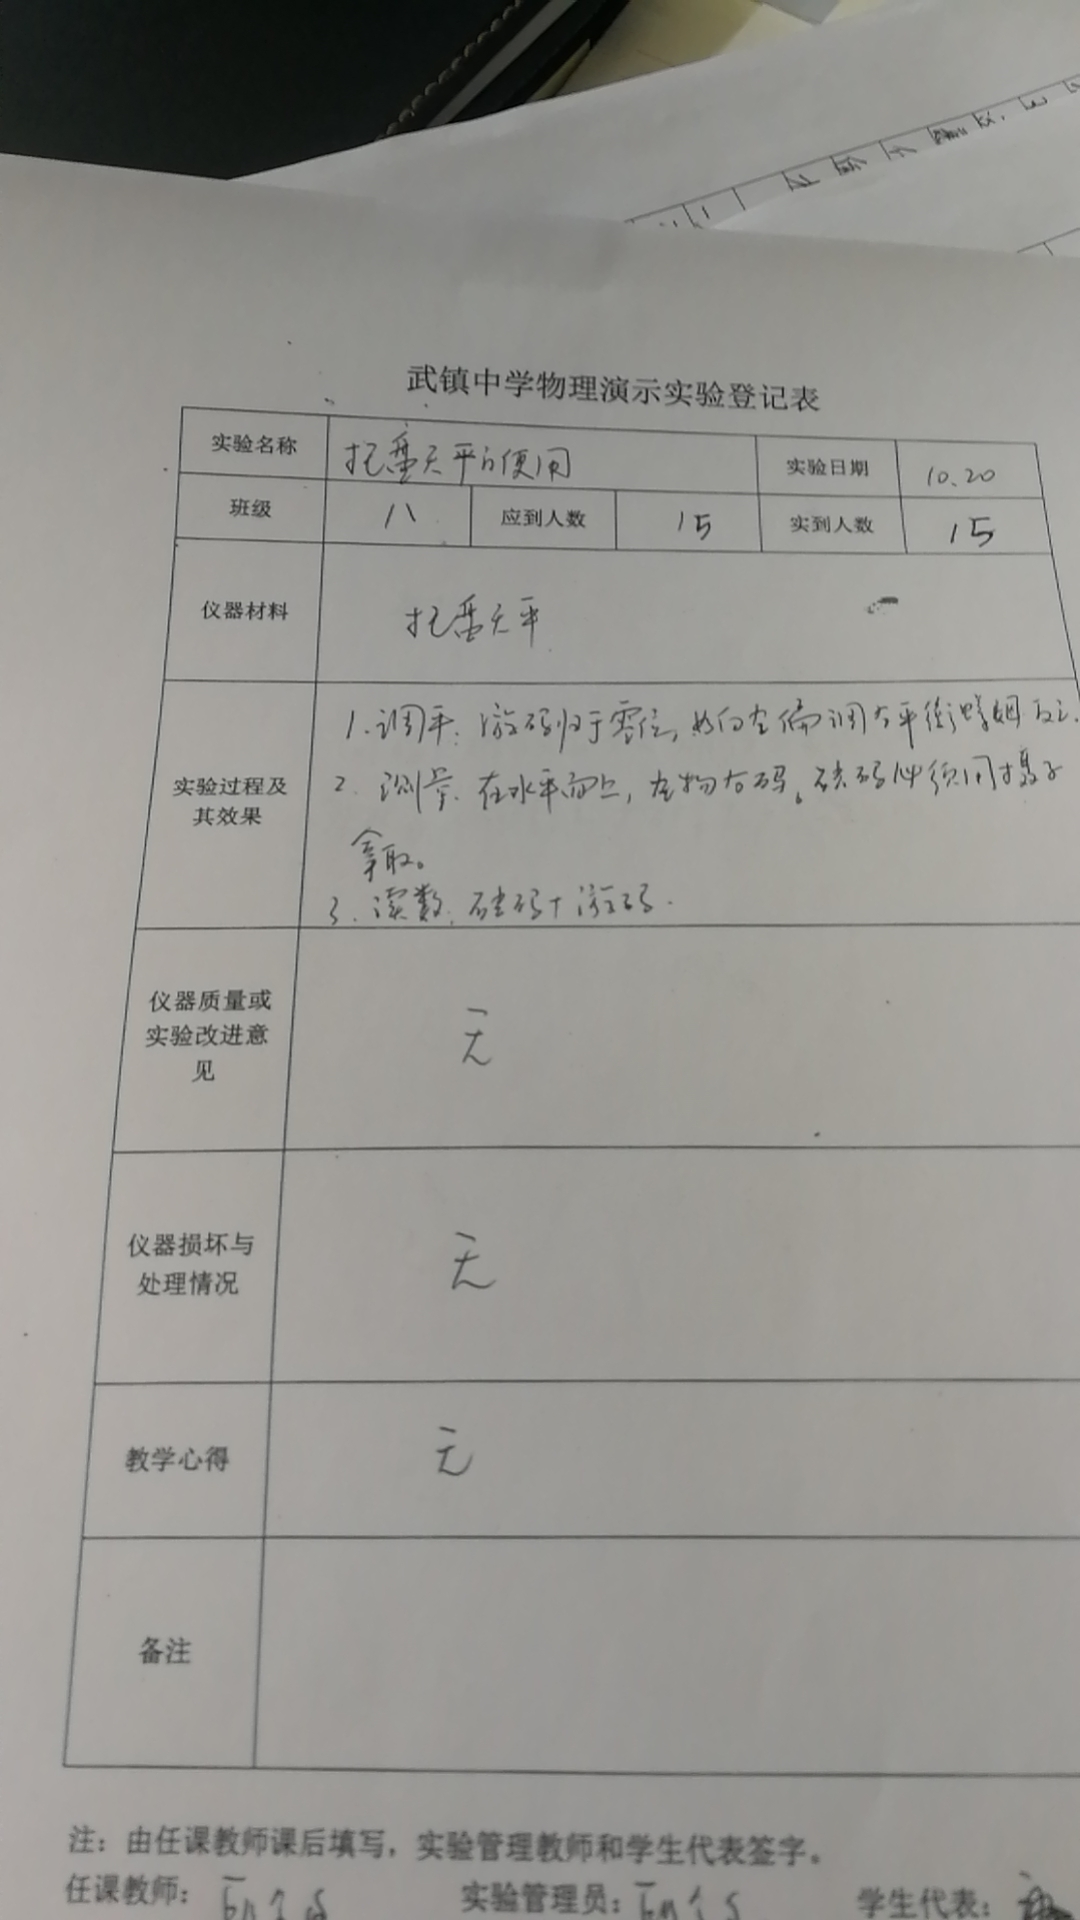 武镇中学物理演示实验登记表
实验名称 托盘天平的使用 实验日期 10.20
班级 八 应到人数 15 实到人数 15
仪器材料 托盘天平
实验过程及其效果
1.调平:游码归于零位,如向左偏调右平衡螺姆
2.测量.在水平面上,左物右码。砝码必须用摄子
拿取。
3.读数.砝码+游码.
仪器质量或
实验改进意
见
无
仪器损坏与
处理情况
无
教学心得 无
备注
注:由任课教师课后填写,实验管理教师和学生代表签字。
任课教师: 实验管理员: 学生代表: